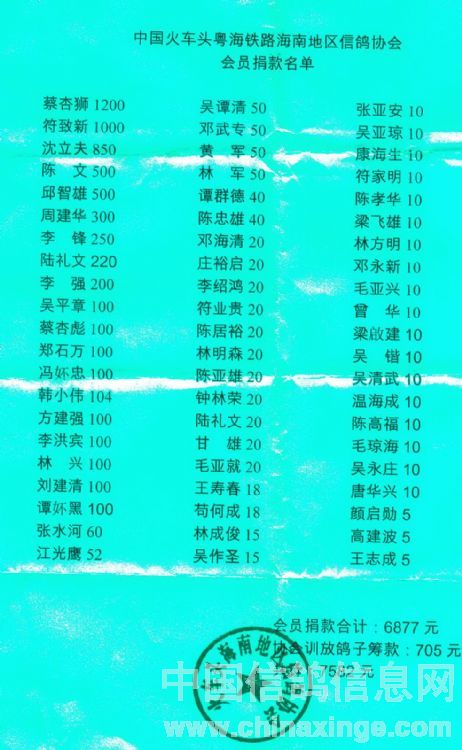 中国火车头粤海铁路海南地区信鸽协会
会员捐款名单
蔡杏狮 1200
符致新 1000
沈立夫 850
陈 文 500
邱智雄 500
周建华 300
李 锋 250
陆礼文 220
李 强 200
吴平章 100
蔡杏彪 100
郑石万 100
冯妚忠 100
韩小伟 104
方建强 100
李洪宾 100
林 兴 100
刘建清 100
谭妚黑 100
张水河 60
江光鹰 52
吴谭清 50
邓武专 50
黄 军 50
林 军 50
谭群德 40
陈忠雄 40
邓海清 20
庄裕启 20
李绍鸿 20
符业贵 20
陈居裕 20
林明森 20
陈亚雄 20
钟林荣 20
陆礼文 20
甘 雄 20
毛亚就 20
王寿春 18
苟何成 18
林成俊 15
吴作圣 15
张亚安 10
吴亚琼 10
康海生 10
符家明 10
陈孝华 10
梁飞雄 10
林方明 10
邓永新 10
毛亚兴 10
曾 华 10
梁啟建 10
吴 锴 10
吴清武 10
温海成 10
陈高福 10
毛琼海 10
吴永庄 10
唐华兴 10
颜启勋 5
高建波 5
王志成 5
会员捐款合计：6877 元
协会训放鸽子筹款：705 元
7582 元
海南地区
中国信鸽信息网
www.chinaxinge.com